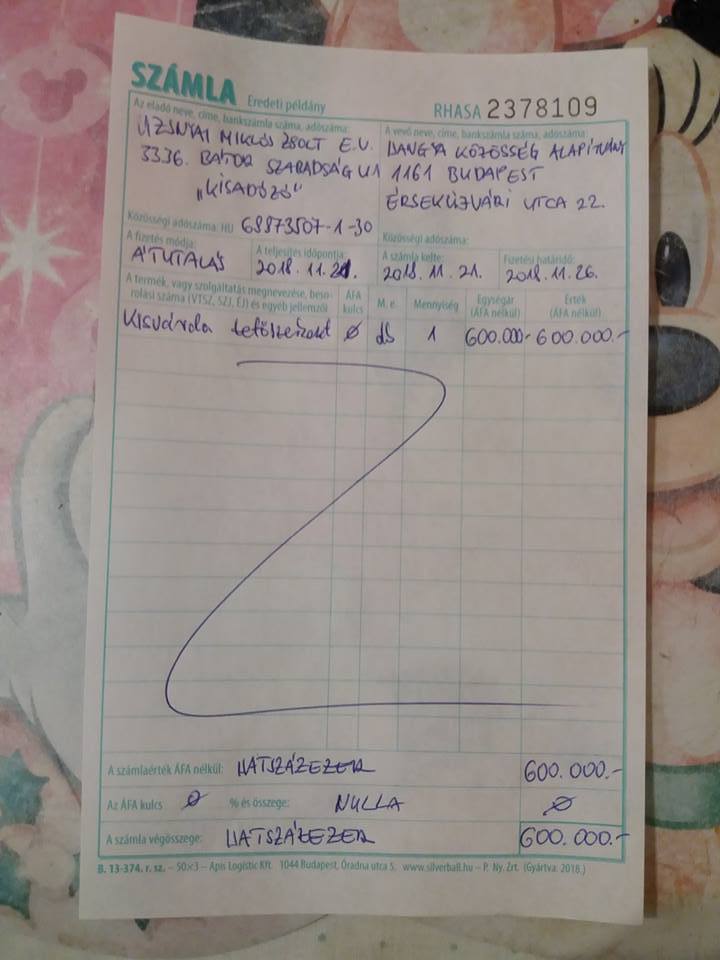 SZÁMLA Eredeti példány RHASA 2378109
Az eladó neve, címe, bankszámla száma, adószáma:
UZSNYAI MIKLÓS ZSOLT E.V.
3336. BÁTOR SZABADSÁG U 1
„KISADÓZÓ"
Közösségi adószáma: HU 68873507-1-30
A vevő neve, címe, bankszámla száma, adószáma:
HANGYA KÖZÖSSÉG ALAPÍTVÁNY
1161 BUDAPEST
ÉRSEKÚJVÁRI UTCA 22.
Közösségi adószáma:
A fizetés módja: A teljesítés időpontja: A számla kelte: Fizetési határidő:
ÁTUTALÁS 2018.11.21. 2018.11.21. 2018.11.26.
A termék, vagy szolgáltatás megnevezése, beso-
rolási száma (VTSZ, SZJ, ÉJ) és egyéb jellemzői
ÁFA kulcs M. e. Mennyiség Egységár (ÁFA nélkül) Érték (ÁFA nélkül)
Kisvárda tetőszerkezet Ø db 1 600.000.- 600.000.-
A számlaérték ÁFA nélkül: HATSZÁZEZER 600.000.-
Az ÁFA kulcs Ø % és összege: NULLA Ø
A számla végösszege: HATSZÁZEZER 600.000.-
B. 13-374. r. sz. – 50×3 – Apis Logistic Kft. 1044 Budapest, Óradna utca 5. www.silverball.hu – P. Ny. Zrt. (Gyártva: 2018.)